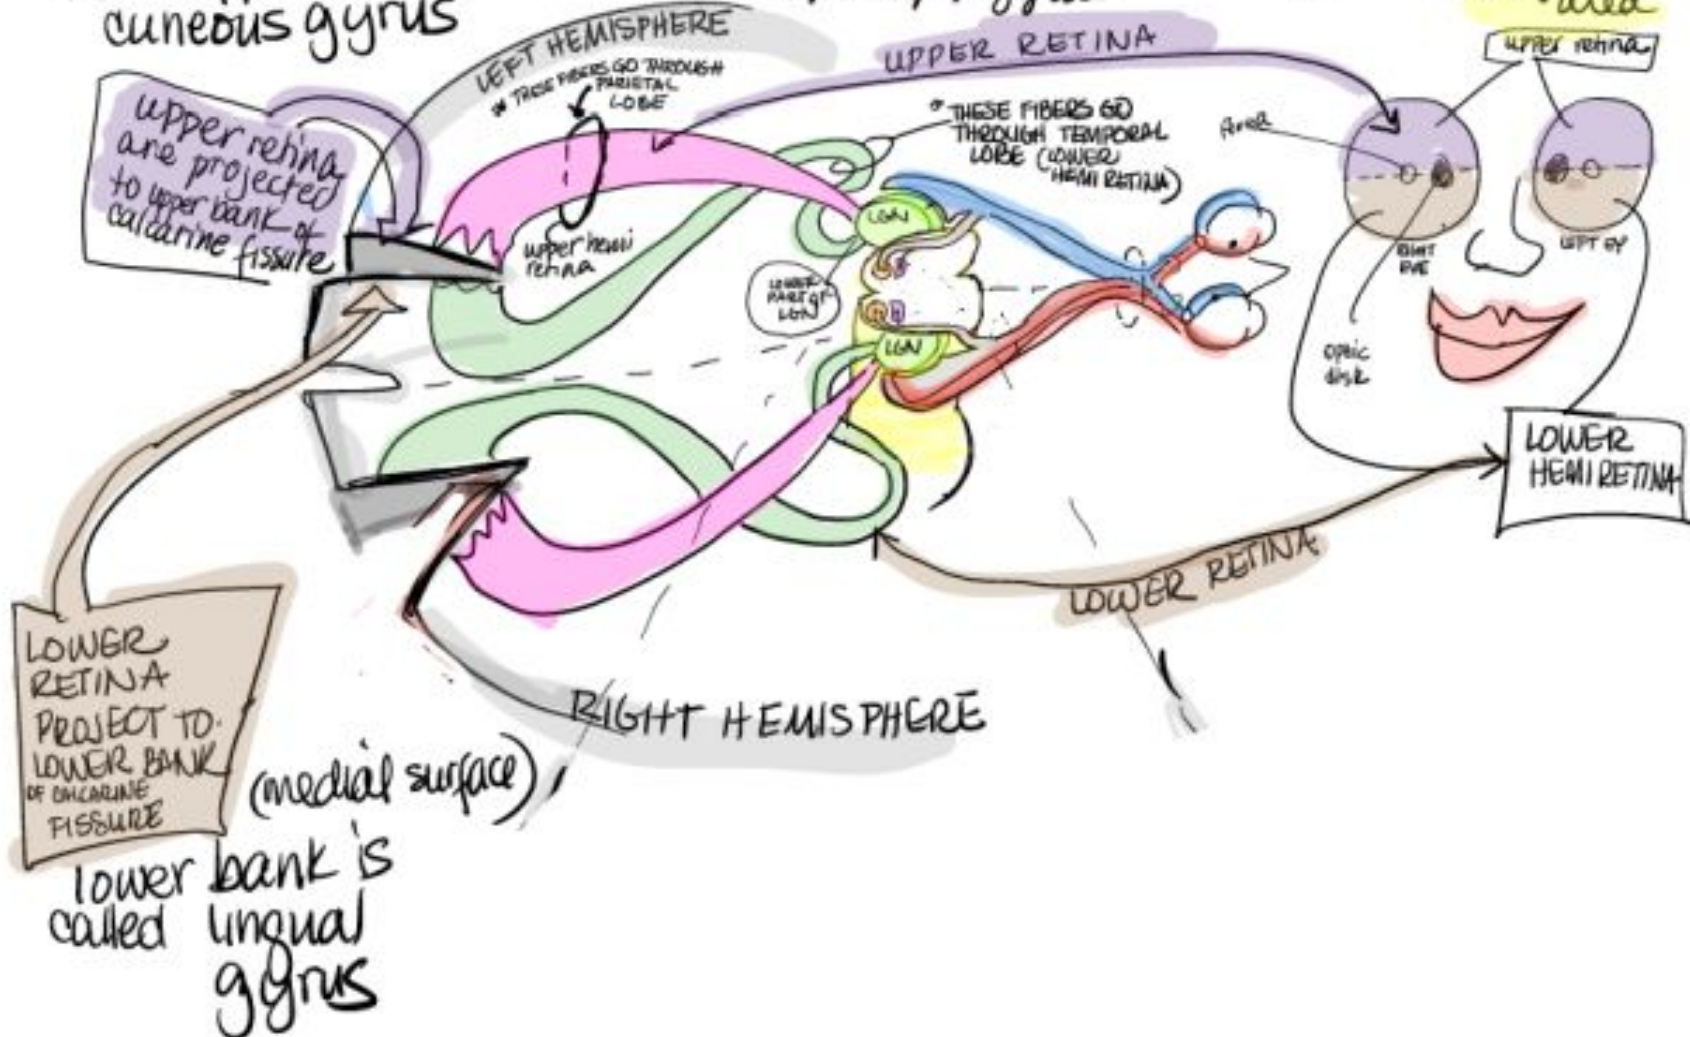 cuneous gyrus
LEFT HEMISPHERE
* THESE FIBERS GO THROUGH
PARIETAL
LOBE
UPPER RETINA
upper retina
upper retina
are projected
to upper bank of
calcarine fissure
* THESE FIBERS GO
THROUGH TEMPORAL
LOBE (LOWER
HEMI RETINA)
Area
LGN
upper hemi
retina
LOWER
PART OF
LGN
LGN
RIGHT
EYE
LEFT EY
optic
disk
LOWER
HEMIRETINA
LOWER RETINA
LOWER
RETINA
PROJECT TO
LOWER BANK
OF CALCARINE
FISSURE
RIGHT HEMISPHERE
(medial surface)
lower bank is
called lingual
gyrus